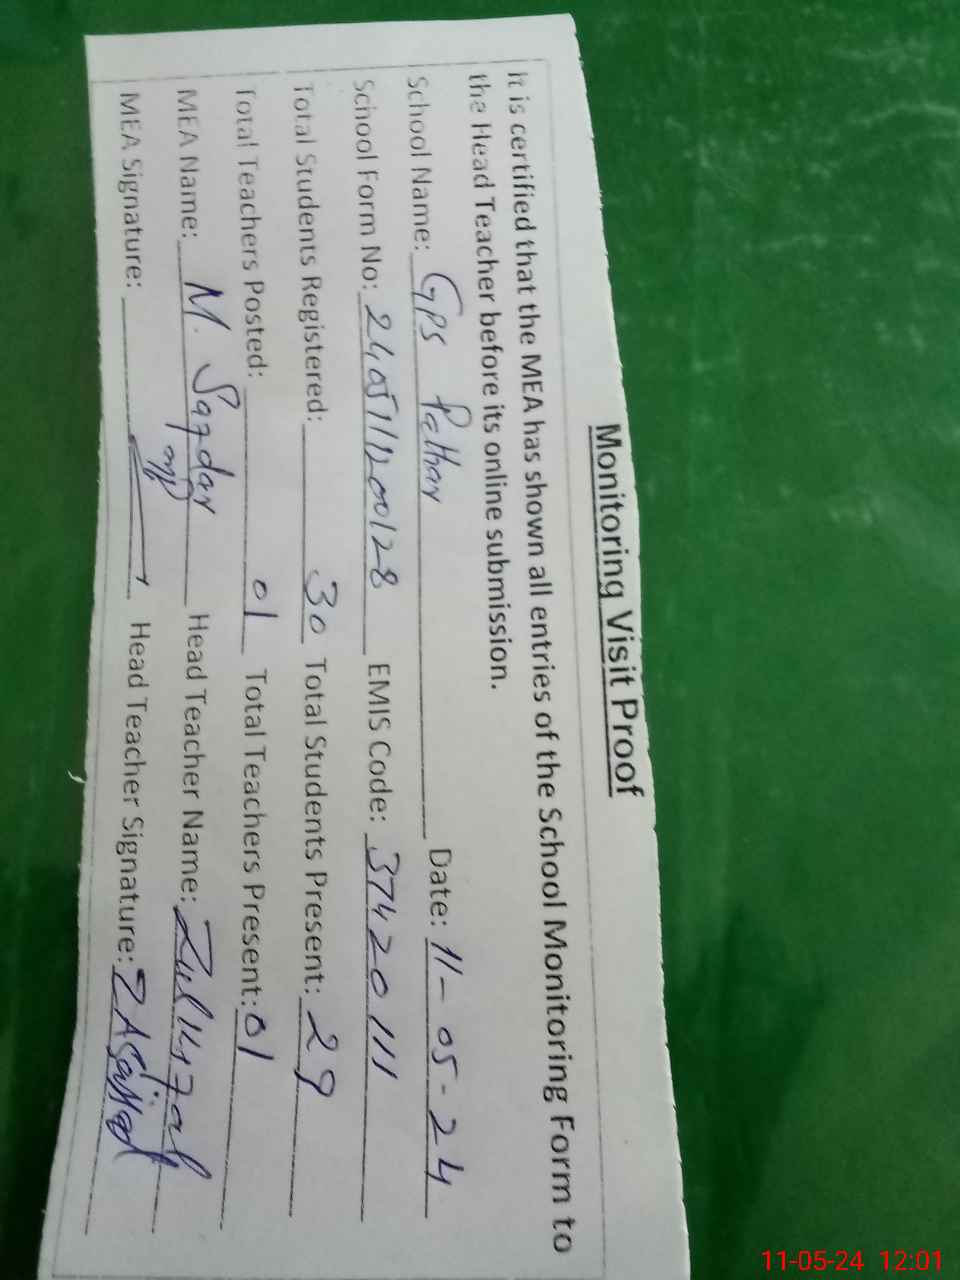 Monitoring Visit Proof
It is certified that the MEA has shown all entries of the School Monitoring Form to
the Head Teacher before its online submission.
School Name: GPS Pathar Date: 11-05-24
School Form No: EMIS Code: 37420111
Total Students Registered: 30 Total Students Present: 29
Total Teachers Posted: 01 Total Teachers Present: 01
MEA Name: M. Head Teacher Name:
MEA Signature: Head Teacher Signature:
11-05-24 12:01